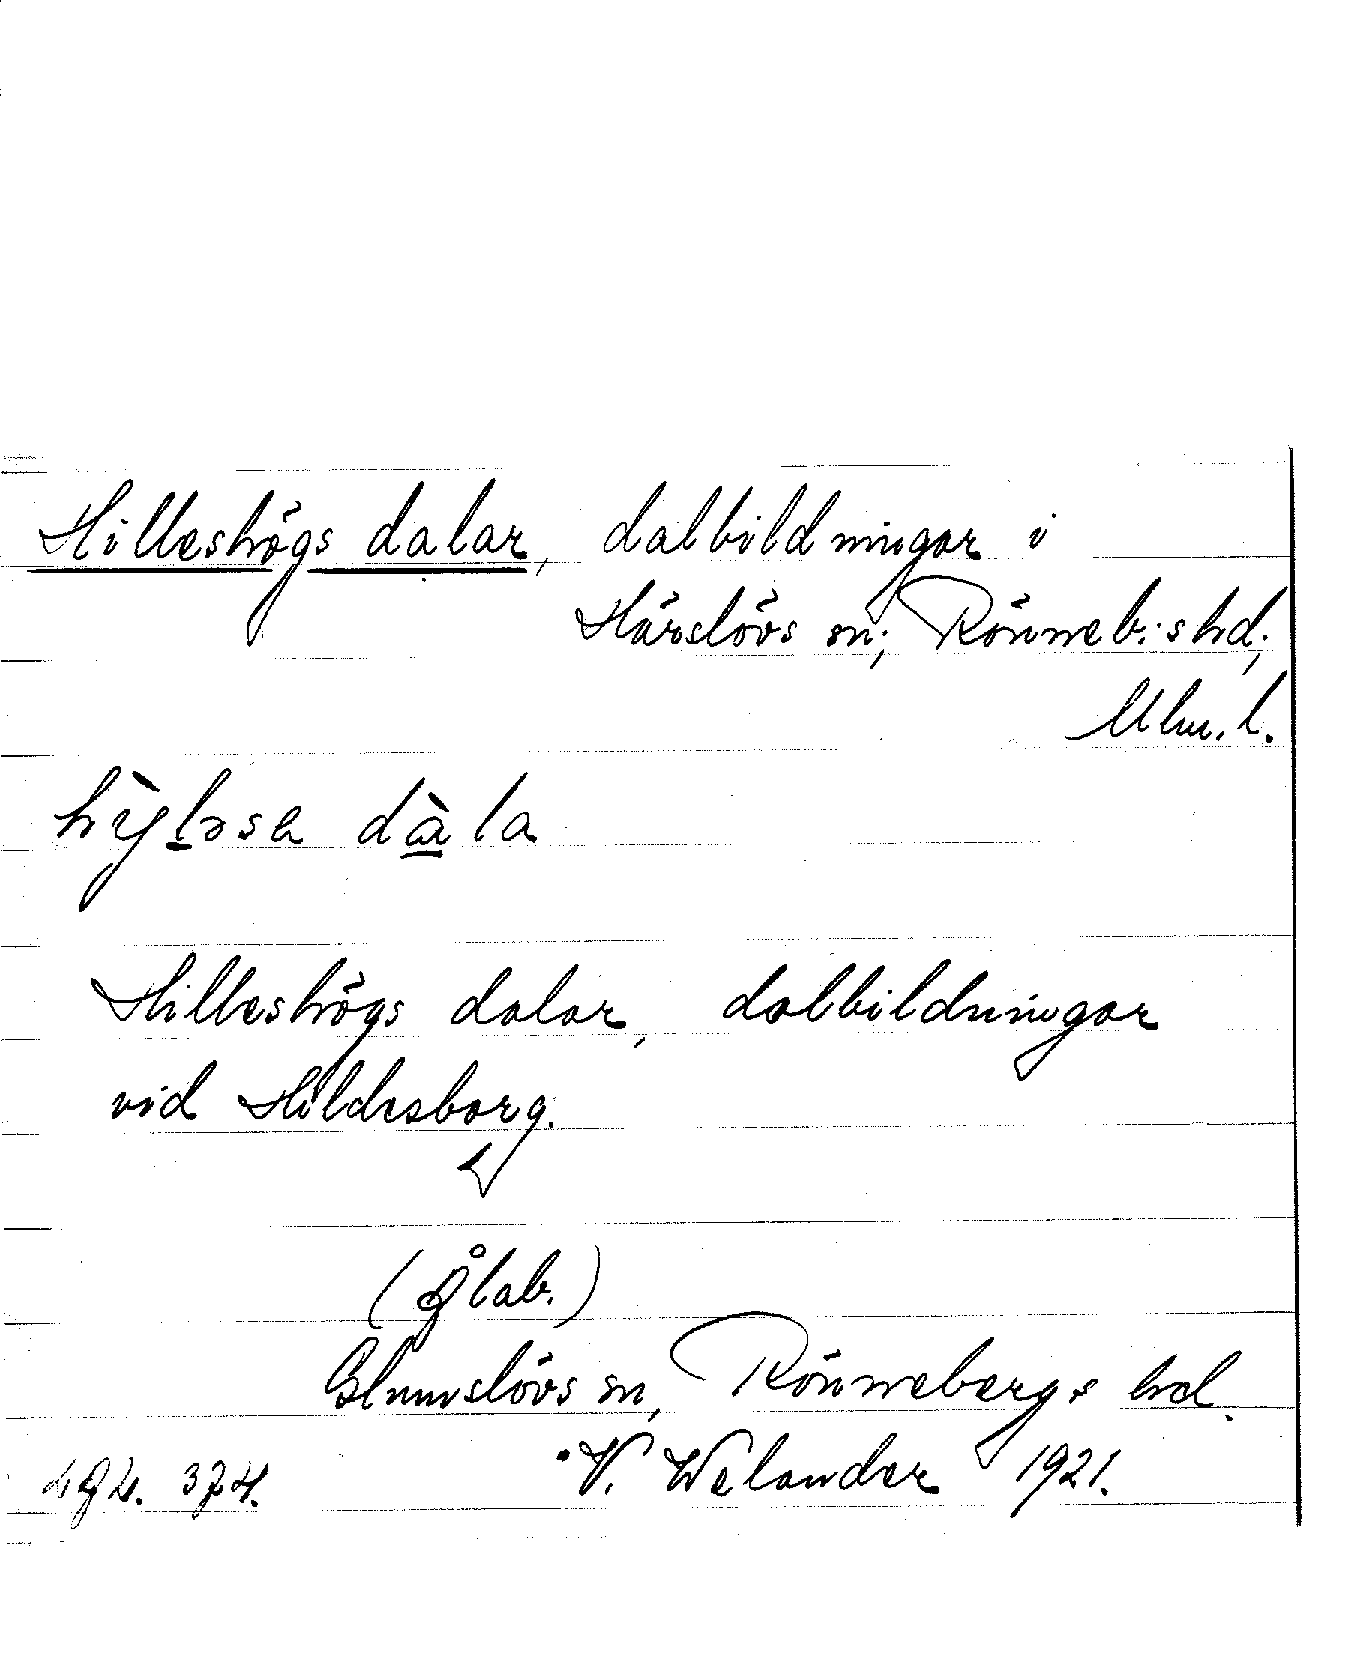 Hilleshögs dalar, dalbildningar i
Härslövs sn; Rönneb:s hd;
Mlm. l.
hỳləsa dàla
Hilleshögs dalar, dalbildningar
vid Hildesborg.
(Ålab.)
Glumslövs sn, Rönnebergs hd.
V. Welander 1921.
374.